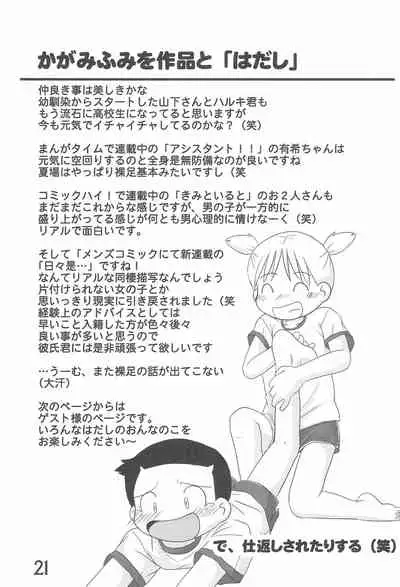 かがみふみを作品と「はだし」
仲良き事は美しきかな
幼馴染からスタートした山下さんとハルキ君も
もう流石に高校生になってると思いますが
今も元気でイチャイチャしてるのかな？（笑）
まんがタイムで連載中の「アシスタント！！」の有希ちゃんは
元気に空回りするのと全身是無防備なのが良いですね
夏場はやっぱり裸足基本みたいですし（笑
コミックハイ！で連載中の「きみといると」のお２人さんも
まだまだこれからな感じですが、男の子が一方的に
盛り上がってる感じが何とも男心理的に情けなーく（笑）
リアルで面白いです。
そして「メンズコミックにて新連載の
「日々是…」ですね！
なんてリアルな同棲描写なんでしょう
片付けられない女の子とか
思いっきり現実に引き戻されました（笑
経験上のアドバイスとしては
早いこと入籍した方が色々後々
良い事が多いと思うので
彼氏君には是非頑張って欲しいです
…うーむ、また裸足の話が出てこない
（大汗）
次のページからは
ゲスト様のページです。
いろんなはだしのおんなのこを
お楽しみください〜
で、仕返しされたりする（笑）
21